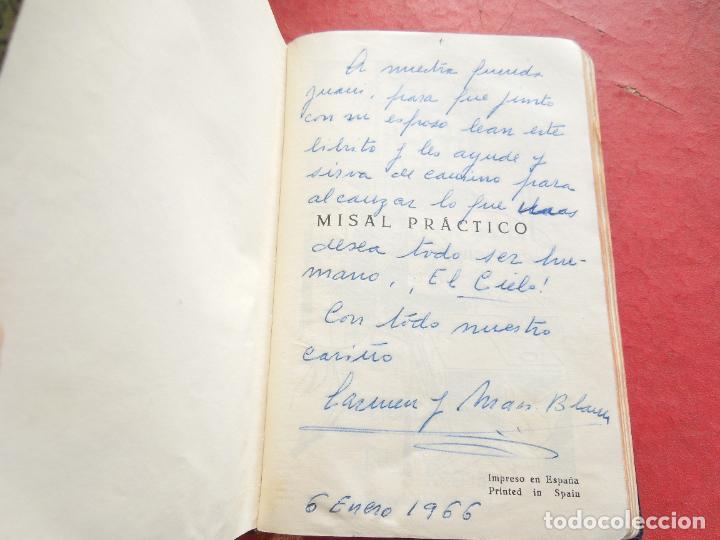 A nuestra querida
Juani, para que junto
con su esposo lean este
librito y les ayude y
sirva de camino para
alcanzar lo que mas
MISAL PRÁCTICO
desea todo ser hu-
mano, ¡El Cielo!
Con todo nuestro
cariño
Carmen y Blanca
Impreso en España
Printed in Spain
6 Enero 1966
todocoleccion